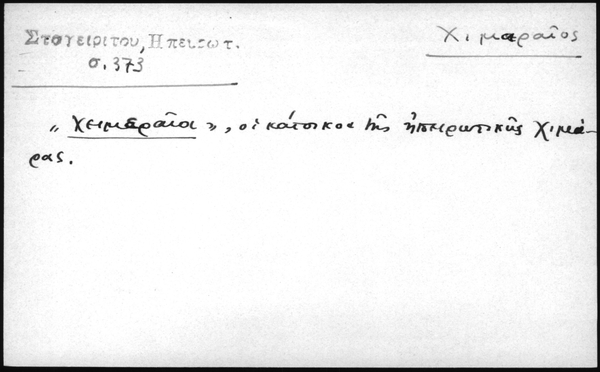 Σταγειρίτου, Ηπειρωτ.
σ. 373
Χιμαραῖος
„ Χειμεραῖοι ", οἱ κάτοικοι τῆς ἠπειρωτικῆς Χιμά-
ρας.